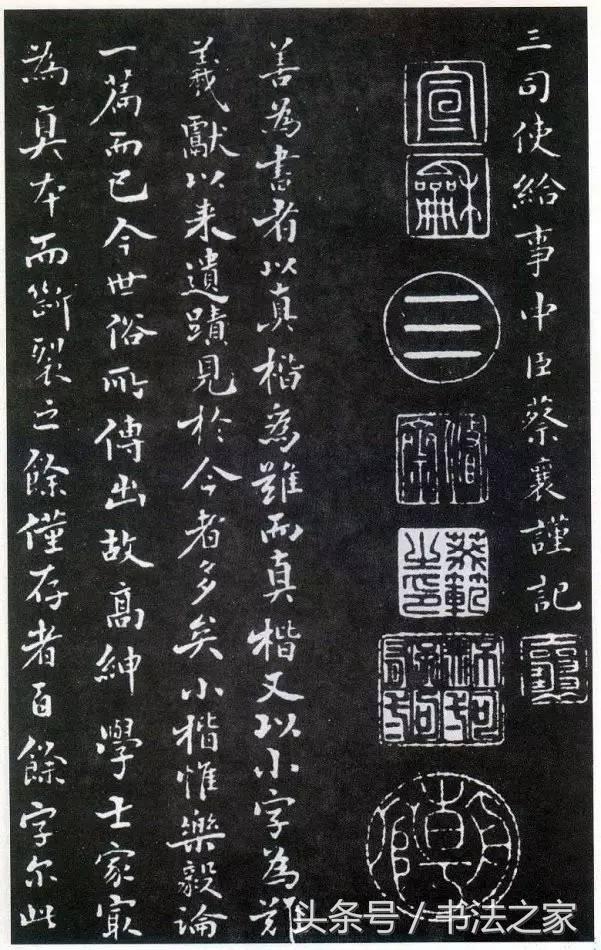 三司使給事中臣蔡襄謹記
宣
龢
三
蔡範
之印
善為書者以真楷為難而真楷又以小字為難
羲獻以来遺蹟見於今者多矣小楷惟樂毅論
一篇而已今世俗所傳出故高紳學士家冣
為真本而斷裂之餘僅存者百餘字尔此
头条号／书法之家